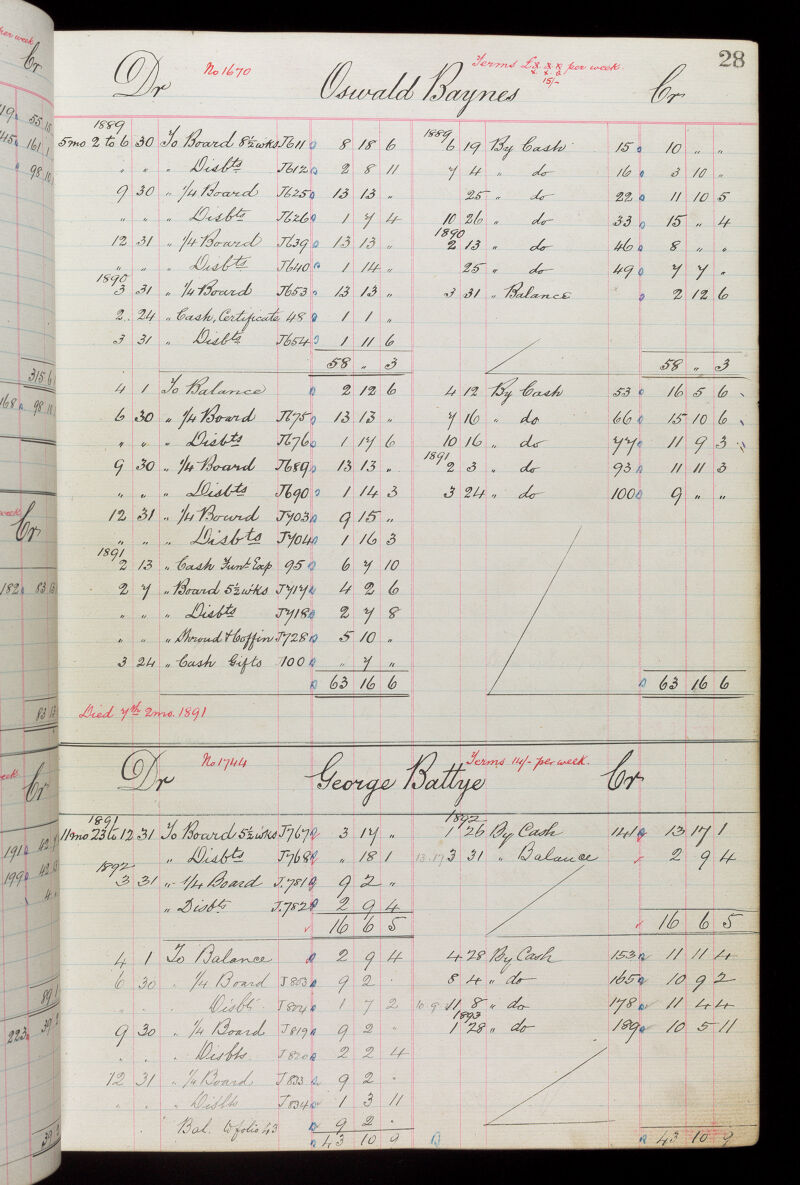 28
Dr No 1670 Oswald Baynes Terms £x.x.x per week. 15/- Cr
1889 1889
5mo 2 to 6 30 To Board 8½ wks J611 8 18 6 6 19 By Cash 15 10 " "
" " " Disbts J612 2 8 11 7 4 " do 16 3 10 "
9 30 " ¼ Board J625 13 13 " 25 " do 22 11 10 5
" " " Disbts J626 1 7 4 10 26 " do 33 15 " 4
1890
12 31 " ¼ Board J639 13 13 " 2 13 " do 46 8 " "
" " " Disbts J640 1 14 " 25 " do 49 7 7 "
1890
3 31 " ¼ Board J653 13 13 " 3 31 " Balance 2 12 6
2 24 " Cash, Certificate 48 1 1 "
3 31 " Disbts J654 1 11 6
58 " 3 58 " 3
4 1 To Balance 2 12 6 4 12 By Cash 53 16 5 6
6 30 " ¼ Board J675 13 13 " 7 16 " do 66 15 10 6
" " " Disbts J676 1 17 6 10 16 " do 77 11 9 3
1891
9 30 " ¼ Board J689 13 13 " 2 3 " do 93 11 11 3
" " " Disbts J690 1 14 3 3 24 " do 100 9 " "
12 31 " ¼ Board J703 9 15 "
" " " Disbts J704 1 16 3
1891
2 13 " Cash Funl. Exp 95 6 7 10
2 7 " Board 5½ wks J717 4 2 6
" " " Disbts J718 2 7 8
" " " Shroud & Coffin J728 5 10 "
3 24 " Cash Gifts 100 " 7 "
63 16 6 63 16 6
Died 7th 2mo. 1891
Dr No 1744 George Battye Terms 14/- per week. Cr
1891 1892
11mo 23 to 12 31 To Board 5½ wks J767 3 17 " 1 26 By Cash 141 13 17 1
" Disbts J768 " 18 1 13 17 3 31 " Balance 2 9 4
1892
3 31 " ¼ Board J.781 9 2 "
" Disbts J.782 2 9 4
16 6 5 16 6 5
4 1 To Balance 2 9 4 4 28 By Cash 153 11 11 4
6 30 " ¼ Board J803 9 2 . 8 4 " do 165 10 9 2
" " " Disbts J804 1 7 2 10 9 11 8 " do 178 11 4 4
1893
9 30 " ¼ Board J819 9 2 " 1 28 " do 189 10 5 11
. . . Disbts J820 2 2 4
12 31 " ¼ Board J833 9 2 .
" " " Disbts J834 1 3 11
Bal. to folio 43 9 2 .
43 10 9 43 10 9